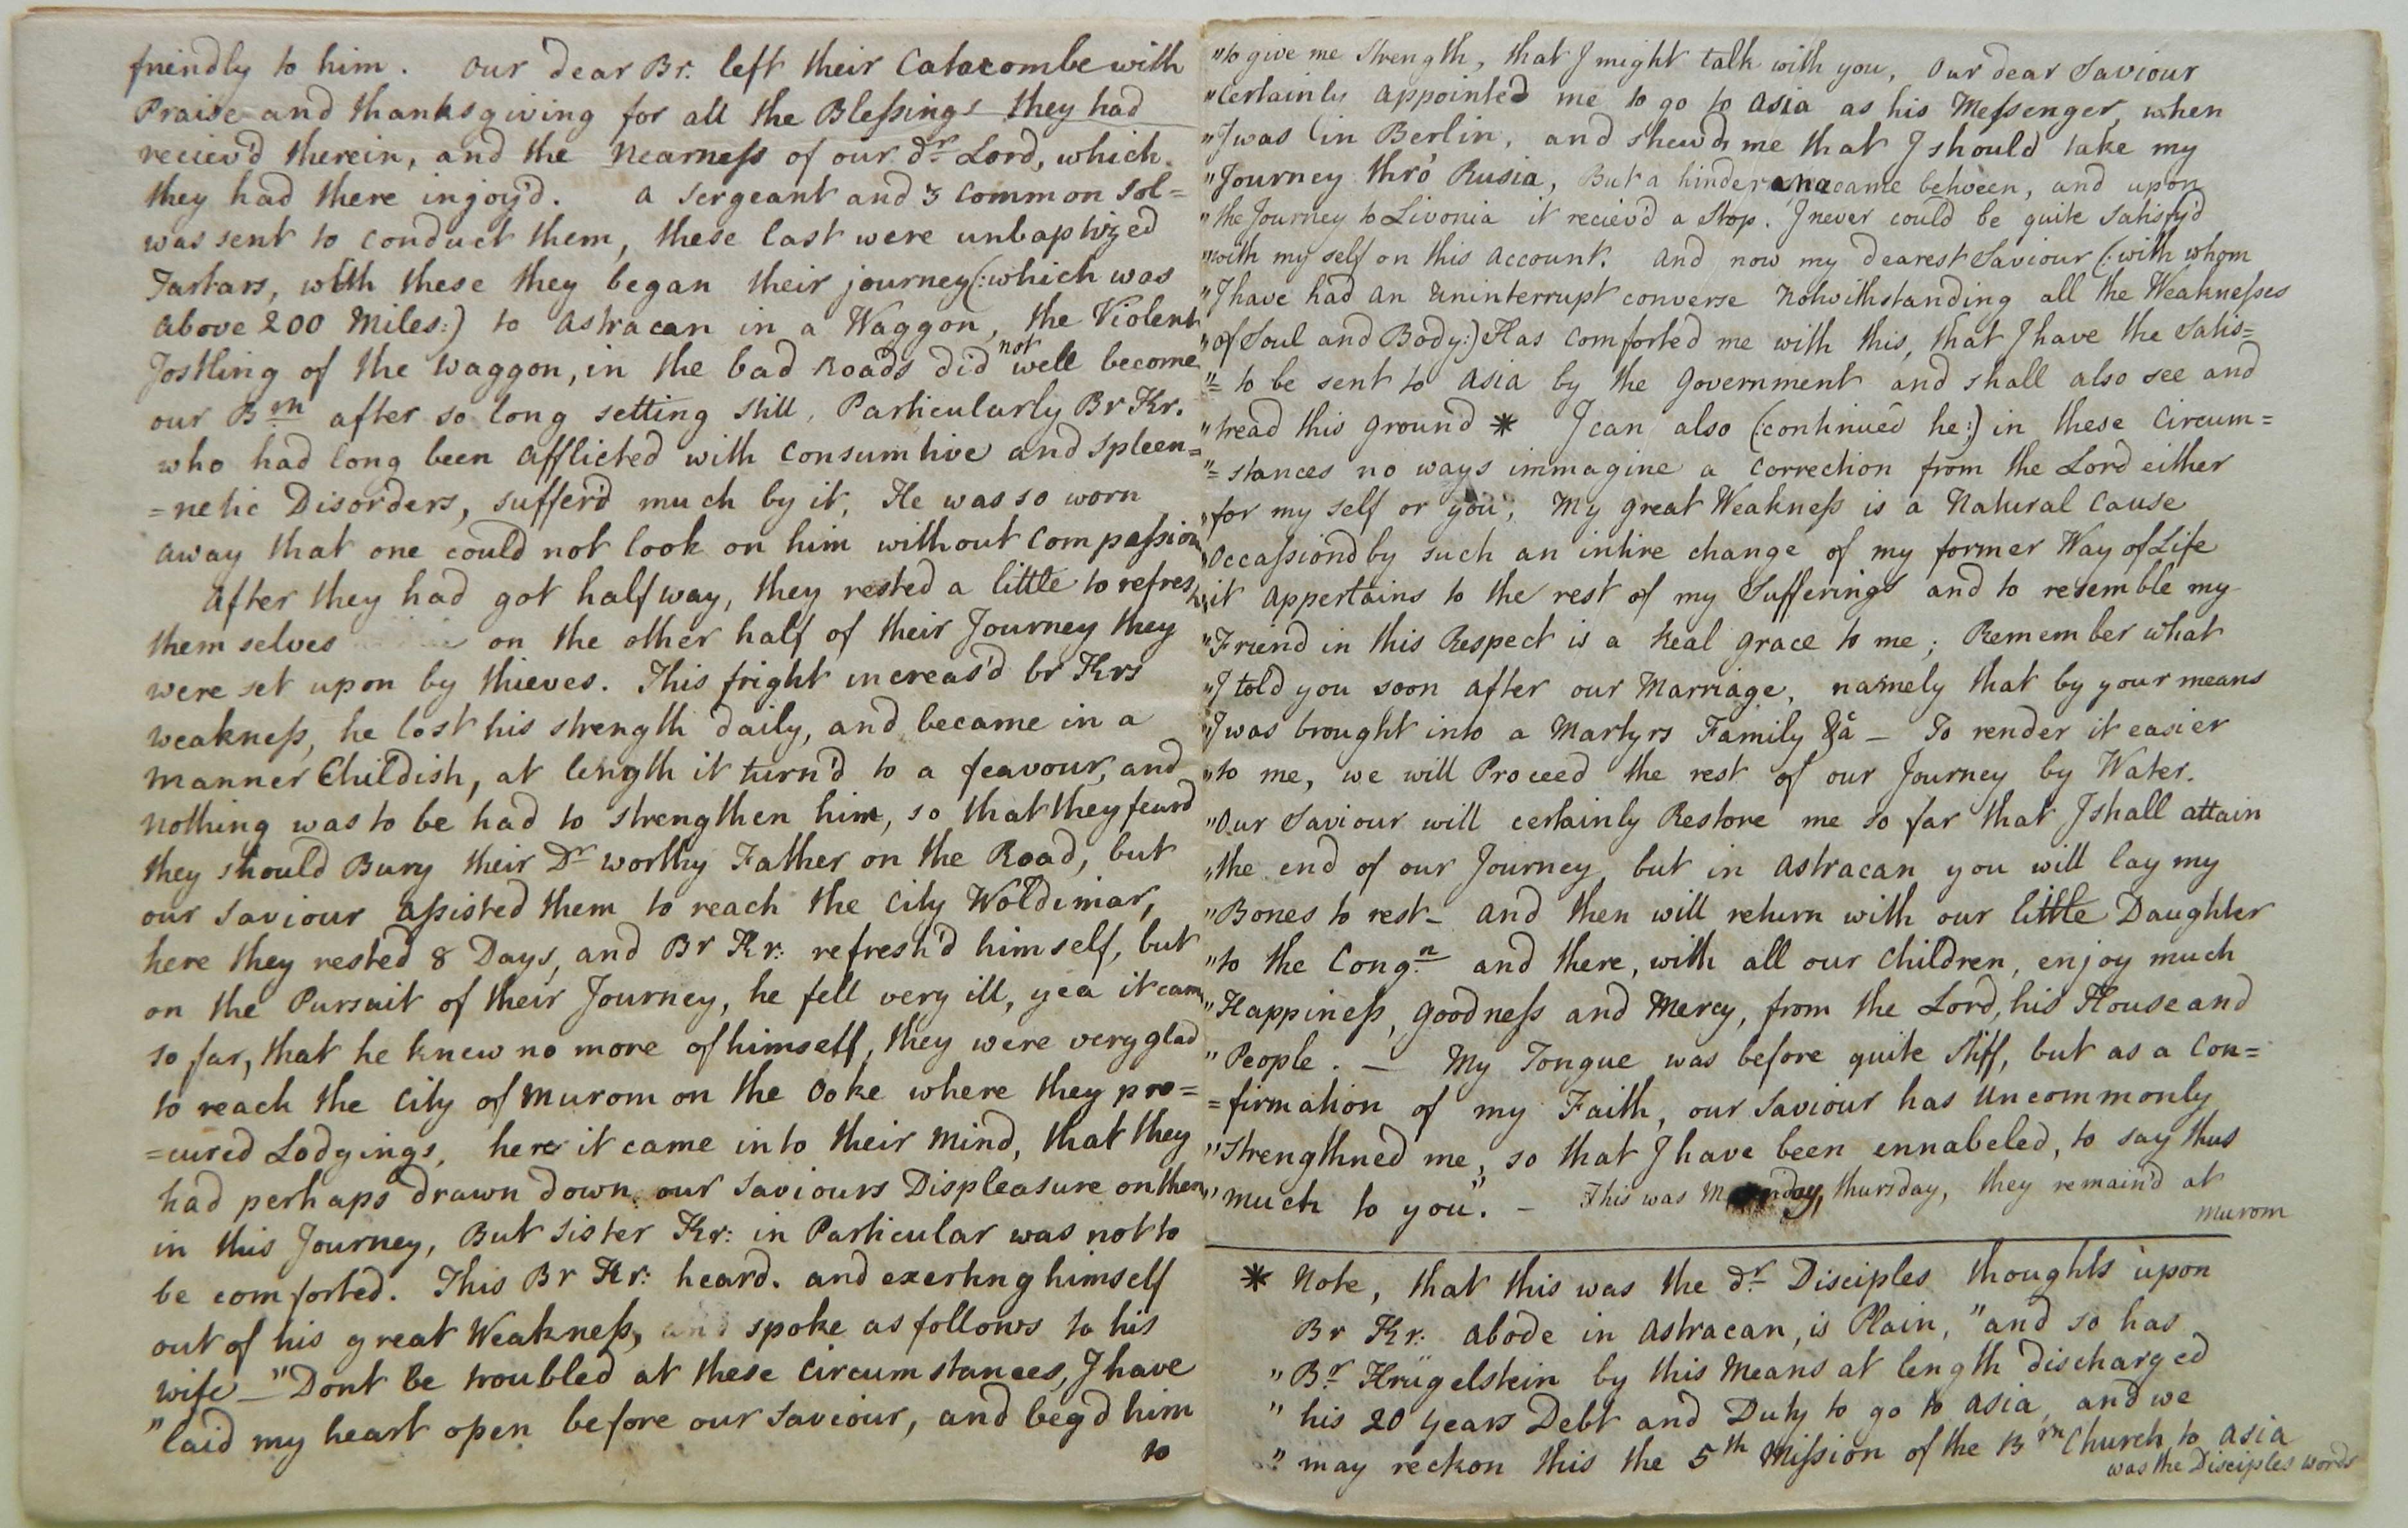 friendly to him. Our dear Br. left their Catacombe with
Praise and thanksgiving for all the Blessings they had
reciev'd therein, and the Nearness of our dr. Lord, which
they had there injoy'd. a Sergeant and 3 Common Sol=
was sent to conduct them, these last were unbaptized
Tartars, with these they began their journey (:which was
above 200 Miles:) to Astracan in a Waggon, the Violent
Jostling of the Waggon, in the bad Roads did not well become
our Brn after so long setting still, Particularly Br Kr.
who had long been afflicted with Consumtive and Spleen=
=netic Disorders, suffer'd much by it, He was so worn
away that one could not look on him without Compassion
After they had got half way, they rested a little to refresh
them selves on the other half of their Journey they
were set upon by thieves. This fright increas'd br Krs
weakness, he lost his strength daily, and became in a
manner Childish, at length it turn'd to a feavour, and
nothing was to be had to strengthen him, so that they feard
they should Bury their Dr worthy Father on the Road, but
our Saviour assisted them to reach the City Woldimar,
here they rested 8 Days, and Br Kr: refresh'd himself, but
on the Pursuit of their Journey, he fell very ill, yea it came
so far, that he knew no more of himself, they were very glad
to reach the City of Murom on the Ooke where they pro=
=cured Lodgings, here it came into their Mind, that they
had perhaps drawn down our Saviours Displeasure on them
in this Journey, But Sister Kr: in Particular was not to
be comforted. This Br Kr: heard. and exerting himself
out of his great Weakness, and spoke as follows to his
wife — "Dont be troubled at these Circumstances, I have
"laid my heart open before our Saviour, and beg'd him
to
"to give me Strength, that I might talk with you, Our dear Saviour
"Certainly appointed me to go to Asia as his Messenger, when
"I was in Berlin, and shew'd me that I should take my
"Journey thro' Rusia, But a hinderance came between, and upon
"the Journey to Livonia it reciev'd a Stop. I never could be quite Satisfy'd
"with my self on this Account. and now my dearest Saviour (:with whom
"I have had an Uninterrupt converse Notwithstanding all the Weaknesses
"of Soul and Body:) Has Comforted me with this, that I have the Satis=
"= to be sent to Asia by the Government and shall also see and
"tread this ground * I can also (:continued he:) in these Circum=
"=stances no ways immagine a Correction from the Lord either
"for my self or you; My great Weakness is a Natural Cause
"Occassiond by such an intire change of my former Way of Life
"it appertains to the rest of my Sufferings and to resemble my
"Friend in this Respect is a Real grace to me; Remember what
"I told you soon after our Marriage, namely that by your means
"I was brought into a Martyrs Family &a — To render it easier
"to me, we will Proceed the rest of our Journey by Water.
"Our Saviour will certainly Restore me so far that I shall attain
"the end of our Journey, but in Astracan you will lay my
"Bones to rest - and then will return with our little Daughter
"to the Congn. and there, with all our Children, enjoy much
"Happiness, goodness and Mercy, from the Lord, his House and
"People. — My Tongue was before quite Stiff, but as a Con=
=firmation of my Faith, our Saviour has Uncommonly
"Strengthned me, so that I have been ennabeled, to say thus
"much to you". — This was thursday, they remain'd at
Murom
* Note, that this was the dr. Disciples thoughts upon
Br Kr: abode in Astracan, is Plain, "and so has
"Br. Krügelstein by this Means at length discharged
"his 20 years Debt and Duty to go to Asia, and we
"may reckon this the 5th Mission of the Brn Church to Asia
was the Disciples words